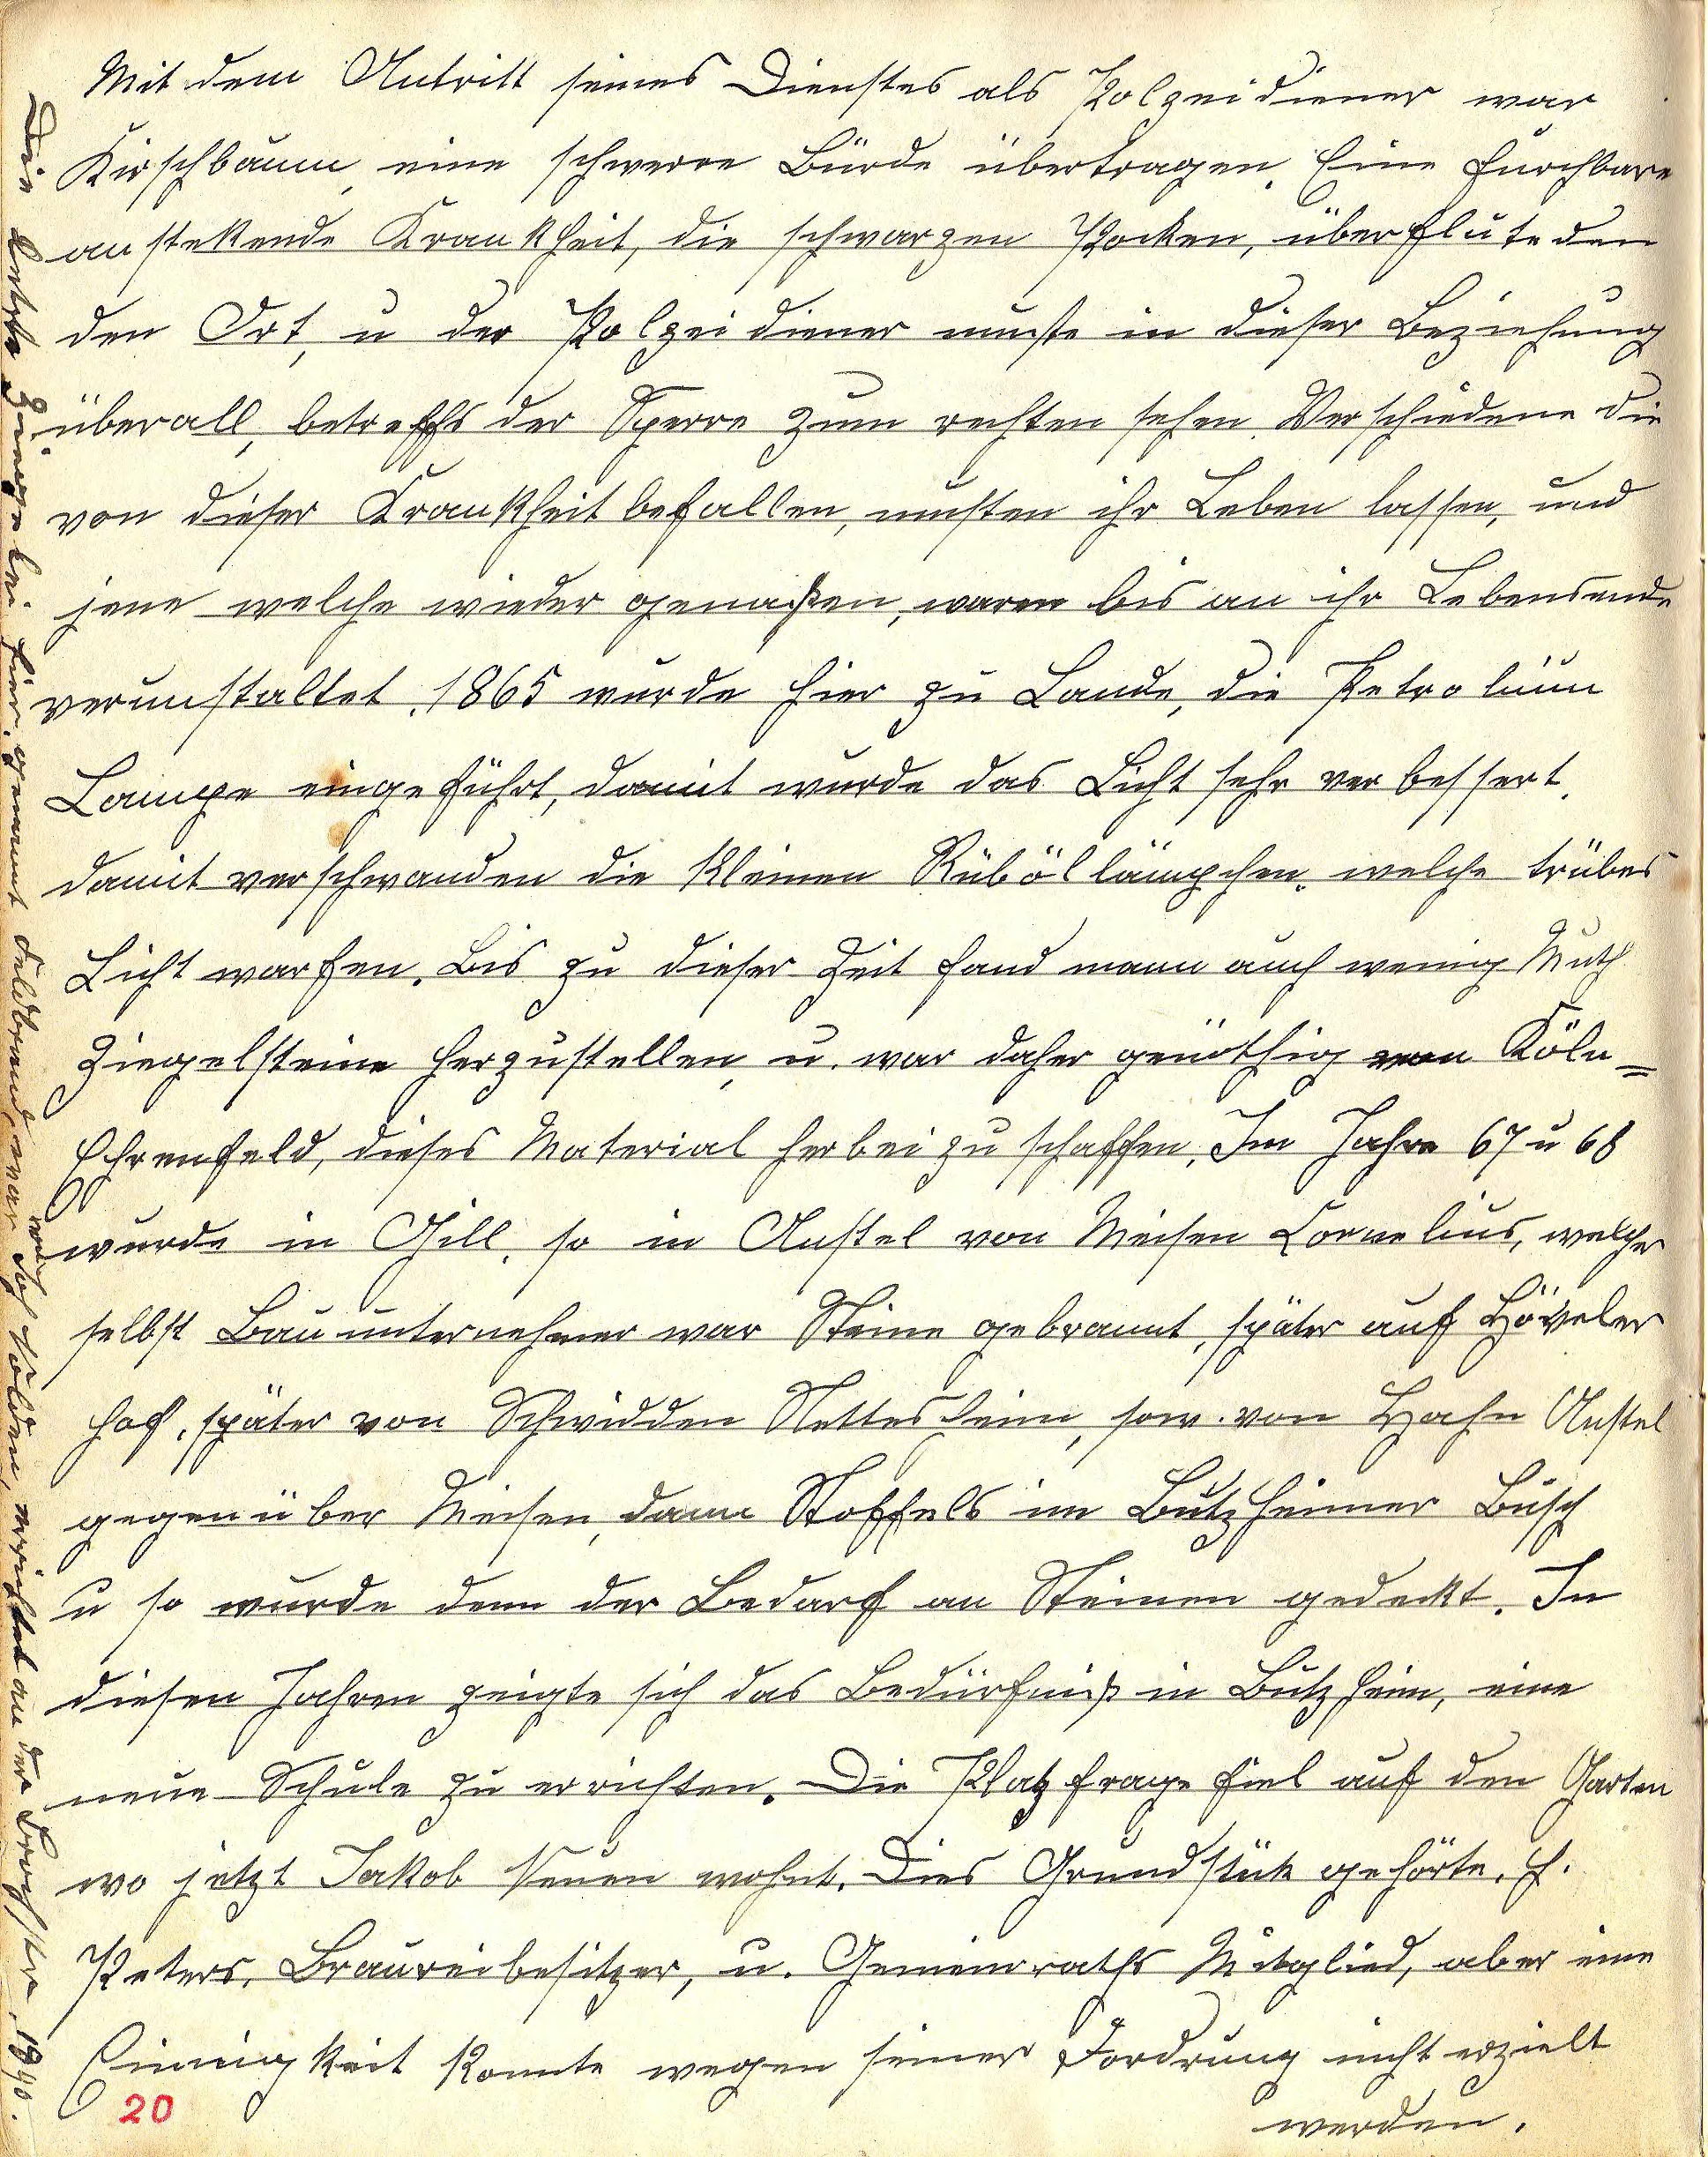 Mit dem Antritt seines Dienstes als Polzeidiener war
Kirschbaum, eine schwere Bürde übertragen. Eine furchbare
anstekende Krankheit, die schwarzen Pocken, überfluteden
den Ort, u der Polzeidiener muste in dieser Beziehung
überall, betreffs der Sperre zum rechten sehen. Verschiedene die
von dieser Krankheit befallen, musten ihr Leben lassen, und
jene welche wieder genaßen, waren bis an ihr Lebensende
verunstaltet. 1865 wurde hier zu Lande, die Petrolium
Lampe eingeführt, damit wurde das Licht sehr verbessert.
damit verschwanden die kleinen Rüböllämpchen, welche trübes
Licht warfen. Bis zu dieser Zeit fand mann auch wenig Muth
Ziegelsteine herzustellen, u. war daher genöthig von Köln=
Ehrenfeld, dieses Material herbei zu schaffen. Im Jahre 67 u 68
wurde in Gill, so in Anstel von Meisen Cornelius, welcher
selbst Bauunternehmer war Steine gebrannt, später auf Höveler
hof, später von Schwidden Nettesheim, sow. von Hahn Anstel
gegenüber Meisen, dann Stoffels im Butzheimer Busch
u so wurde denn der Bedarf an Steinen gedeckt. In
diesen Jahren zeigte sich das Bedürfniß in Butzheim, eine
neue Schule zu errichten. Die Platzfrage fiel auf den Garten
wo jetzt Jakob Neuen wohnt. Dies Grundstük gehörte, H.
Peters, Braureibesitzer, u. Gemeinraths Mitglied, aber eine
Einnigkeit konnte wegen seiner Fordrung nicht erzielt
werden.
20
Die letzte Ziegelei hier, genannt Feldbrand, war von Jos Nolden, errichtet an der 1940.